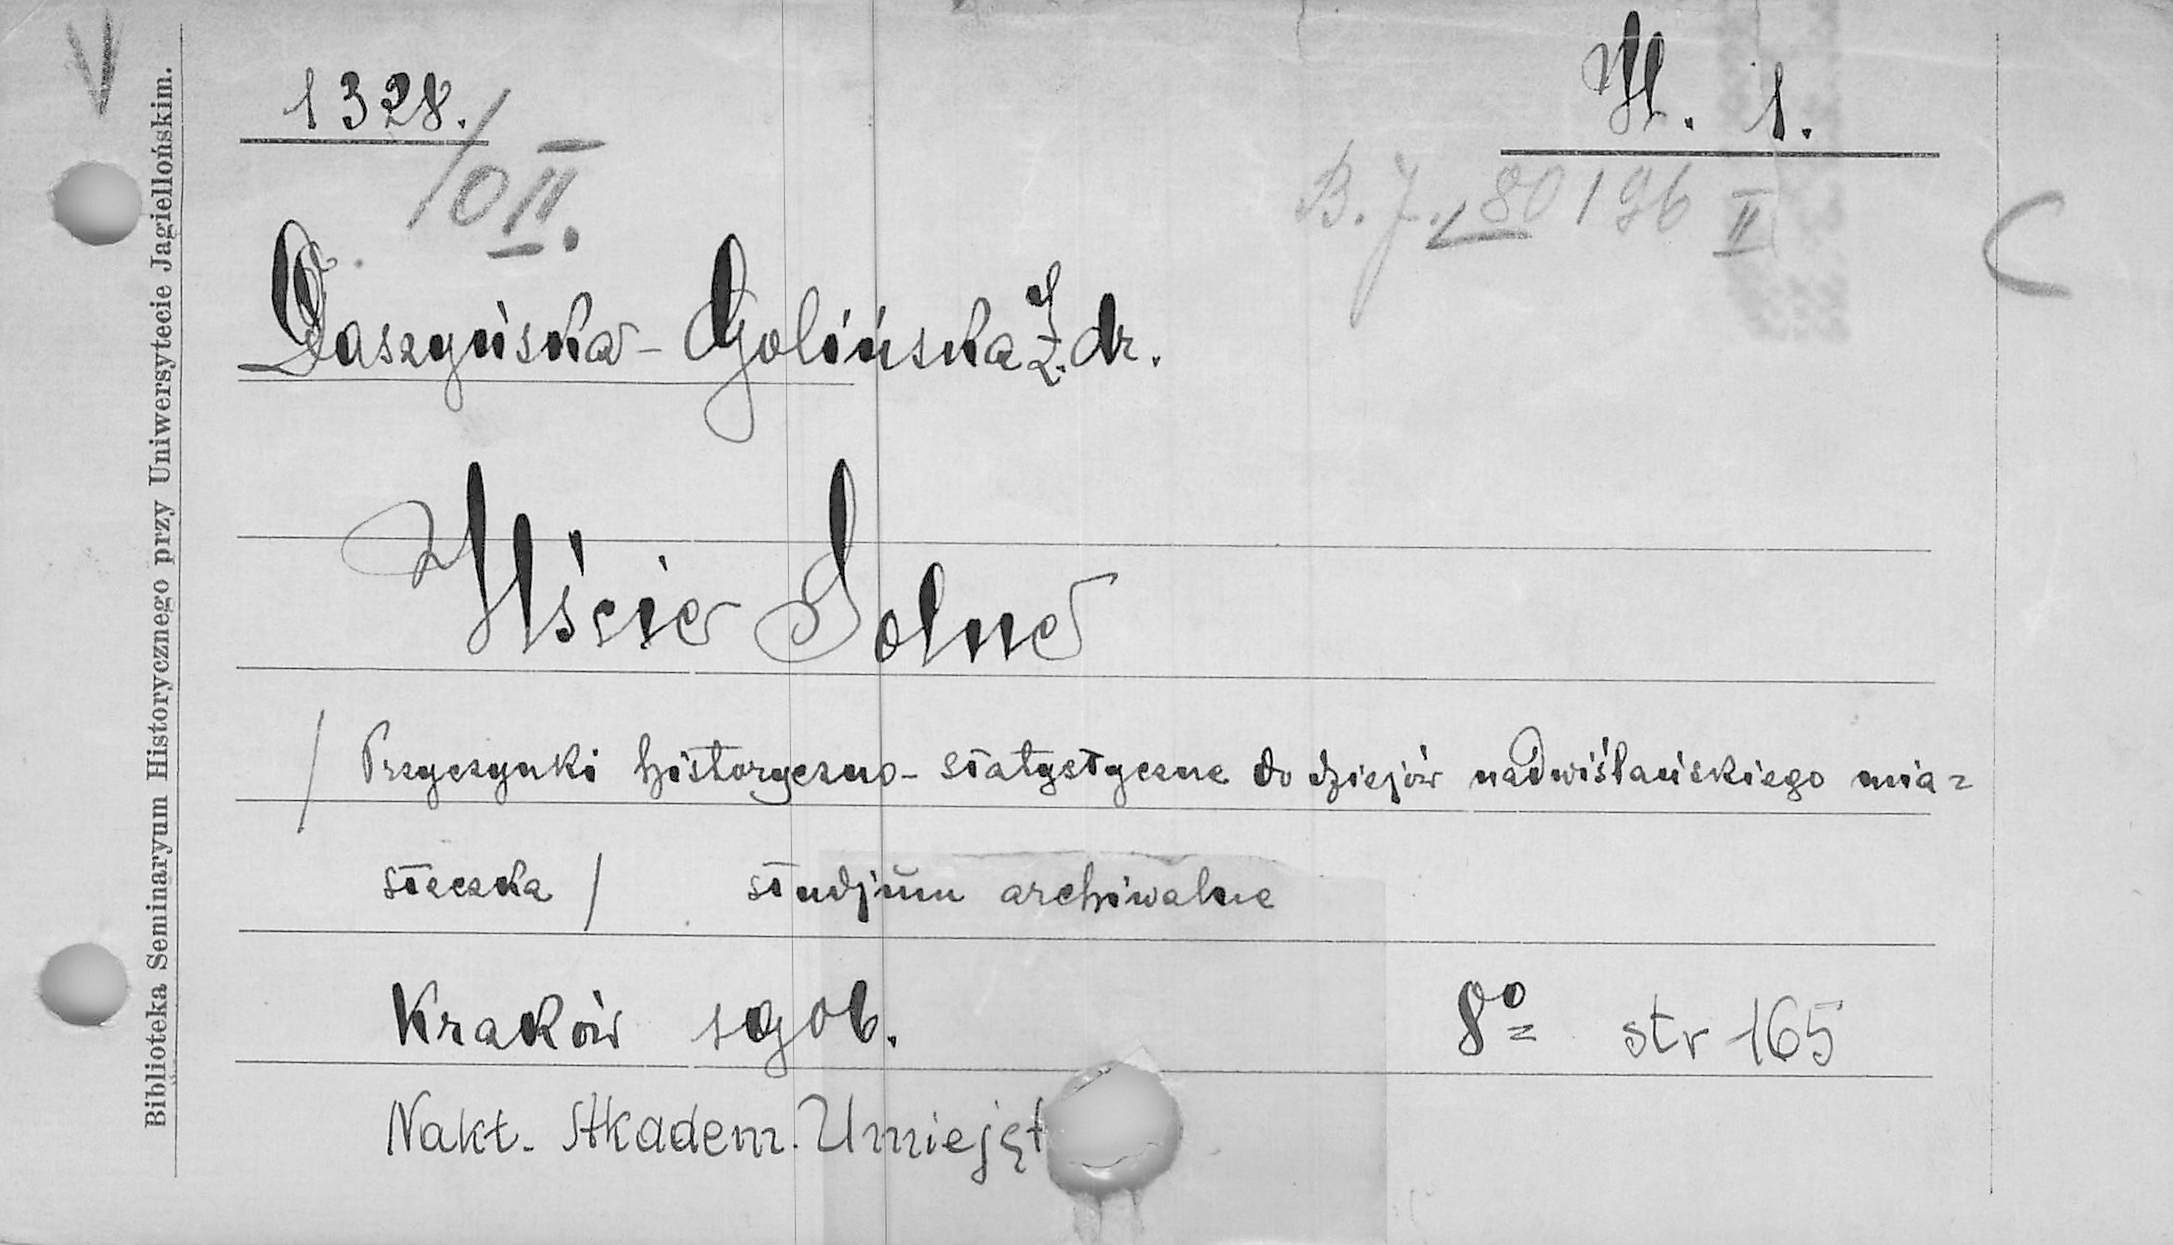 V
Biblioteka Seminaryum Historycznego przy Uniwersytecie Jagiellońskim.
1328. H. 1.
/0 II. B. J. 80196 II
C
Daszyńska-Golińska Z. dr.
Uście Solne
/ Przyczynki historyczno-statystyczne do dziejów nadwiślańskiego mia=
steczka / studjum archiwalne
Kraków 1906. 8º str 165
Nakł. Akadem. Umiejęt